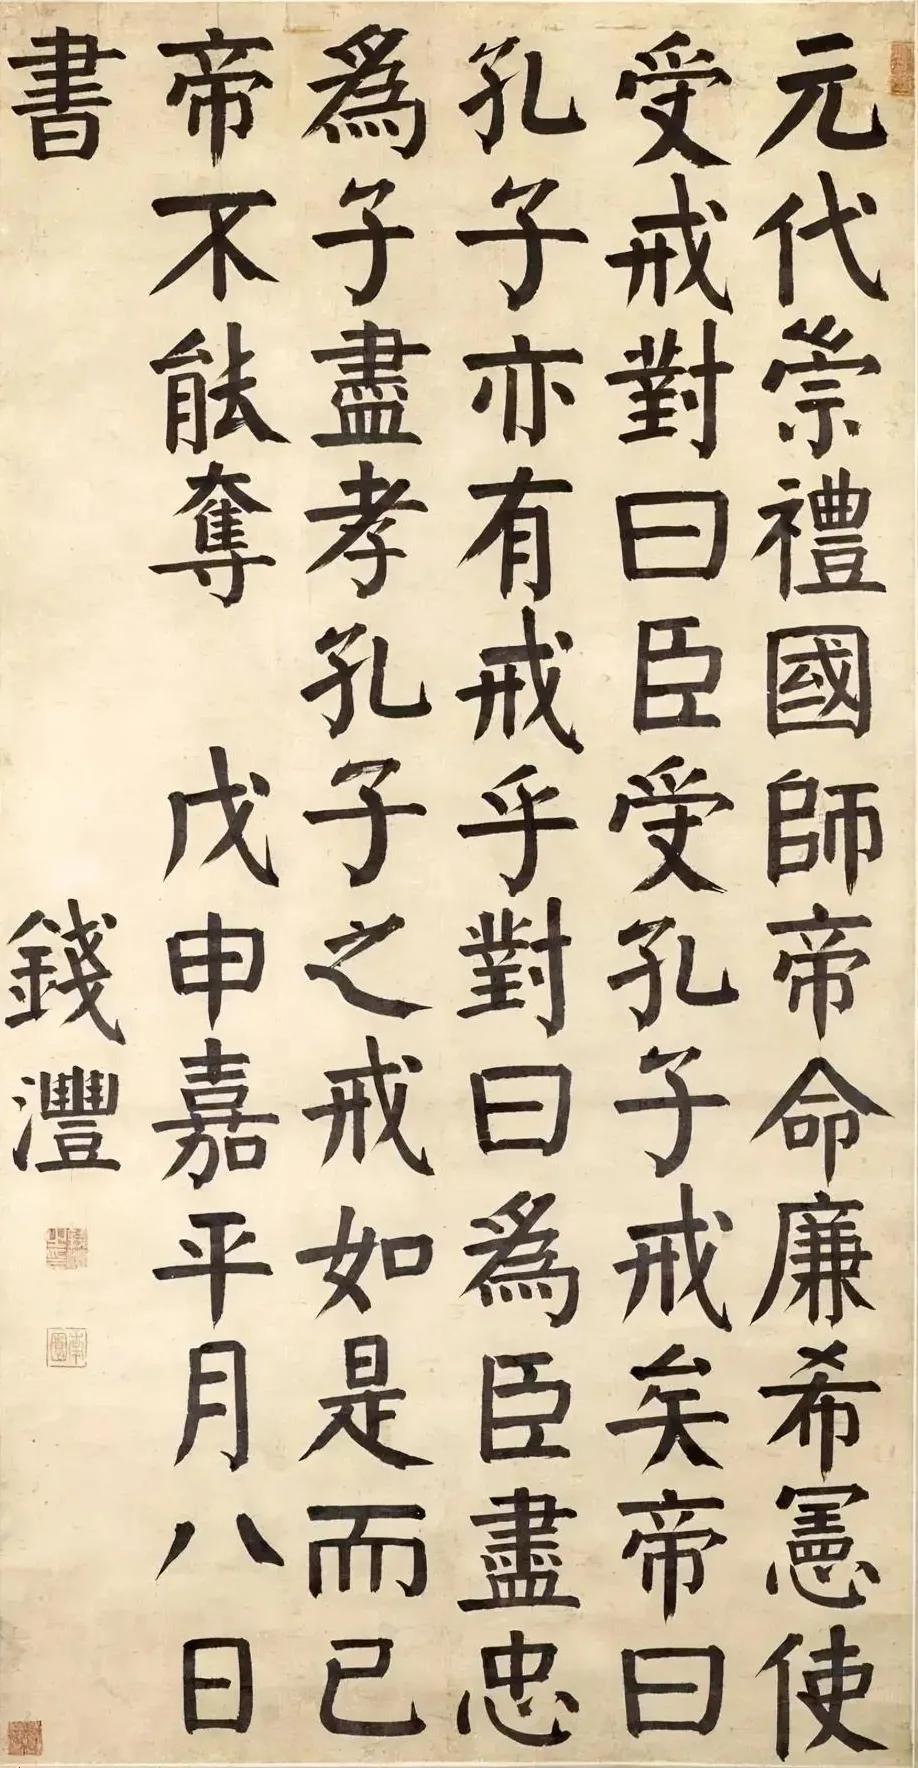 元代崇禮國師帝命廉希憲使
受戒對曰臣受孔子戒矣帝曰
孔子亦有戒乎對曰為臣盡忠
為子盡孝孔子之戒如是而已
帝不能奪 戊申嘉平月八日
書 錢灃
南園